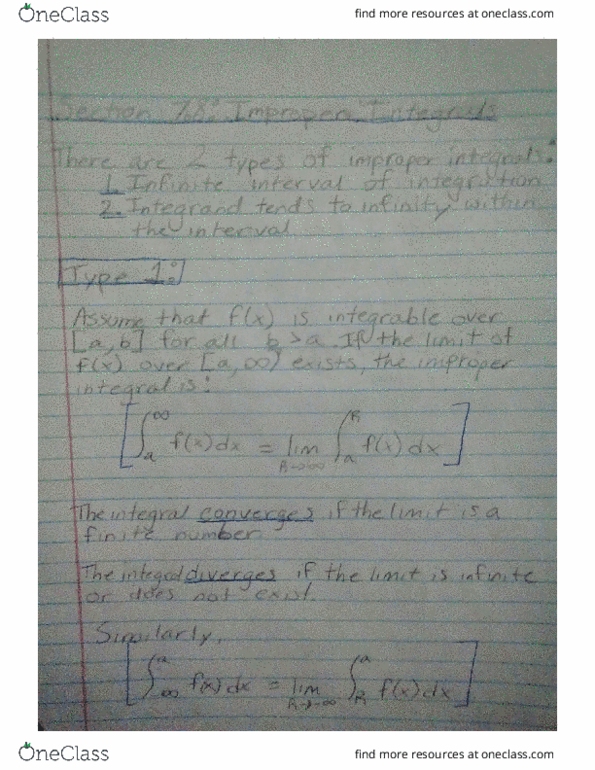 OneClass
find more resources at oneclass.com
Section 7.8: Improper Integrals
There are 2 types of improper integrals:
1. Infinite interval of integration
2. Integrand tends to infinity within
the interval
Type 1:
Assume that f(x) is integrable over
[a,b] for all b > a. If the limit of
f(x) over [a,∞) exists, the improper
integral is:
[∫_a^∞ f(x)dx = lim_{R→∞} ∫_a^R f(x)dx]
The integral converges if the limit is a
finite number.
The integral diverges if the limit is infinite
or does not exist.
Similarly,
[∫_{-∞}^a f(x)dx = lim_{R→-∞} ∫_R^a f(x)dx]
OneClass
find more resources at oneclass.com